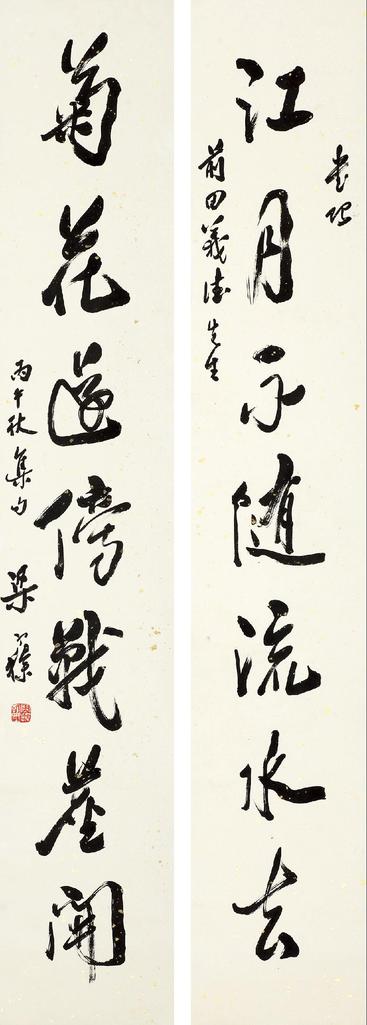 書貽
江月不随流水去
前田義德先生
菊花還傍戰開
丙午秋集句 梁寒操